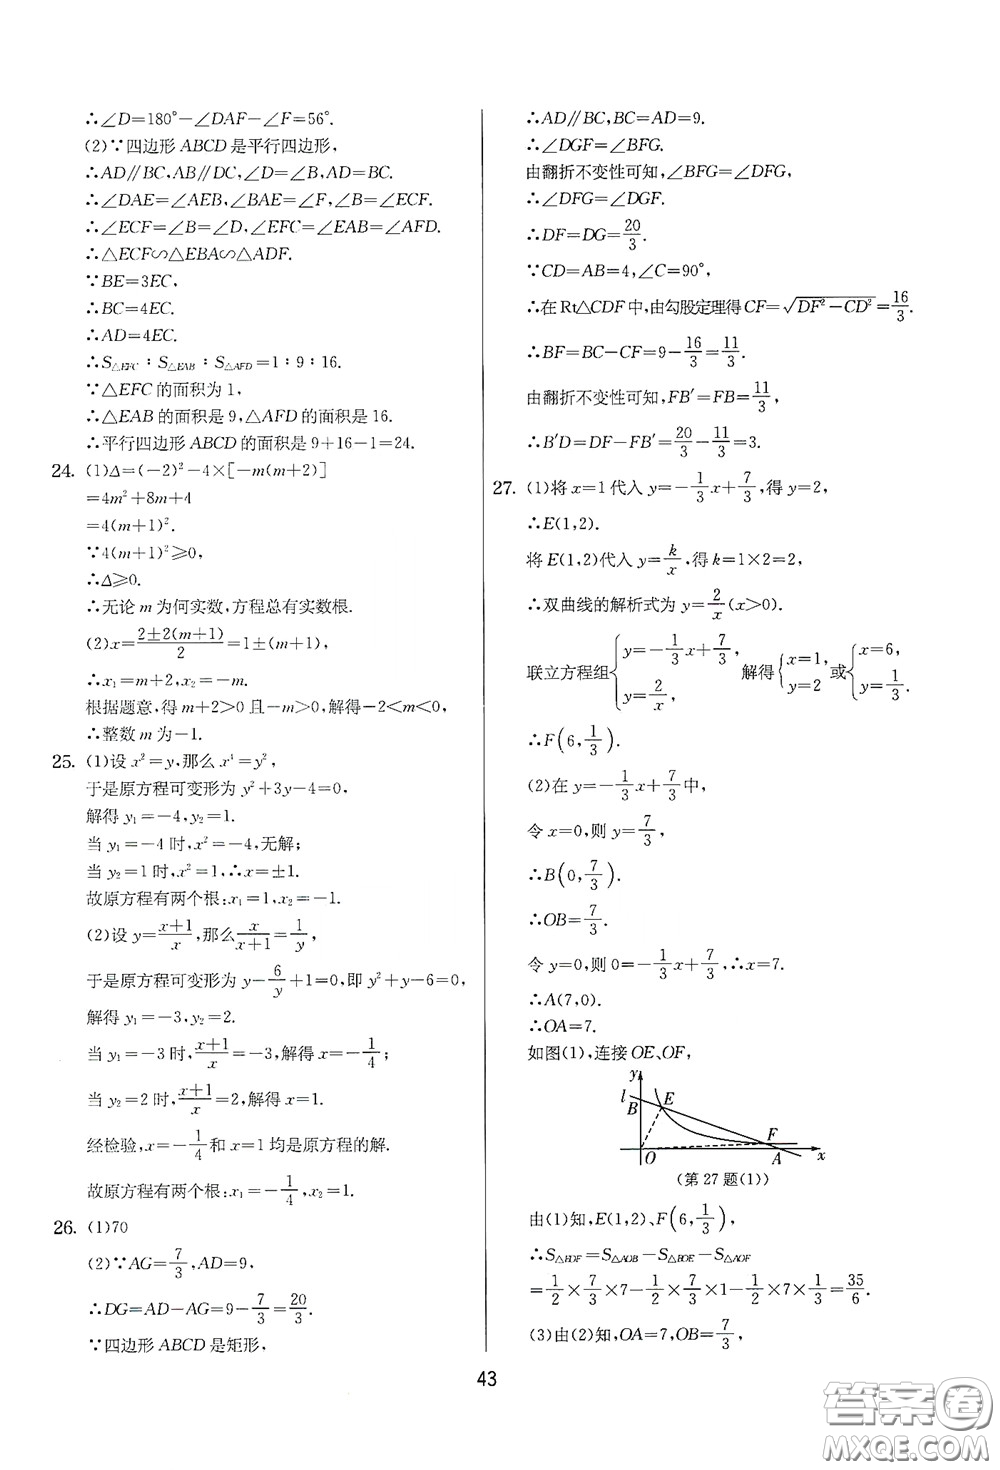 ∴∠D=180°−∠DAF−∠F=56°.
(2)∵四边形 ABCD 是平行四边形,
∴AD∥BC,AB∥DC,∠D=∠B,AD=BC.
∴∠DAE=∠AEB,∠BAE=∠F,∠B=∠ECF.
∴∠ECF=∠B=∠D,∠EFC=∠EAB=∠AFD.
∴△ECF∽△EBA∽△ADF.
∵BE=3EC,
∴BC=4EC.
∴AD=4EC.
∴S△EFC∶S△EAB∶S△AFD=1∶9∶16.
∵△EFC 的面积为 1,
∴△EAB 的面积是 9,△AFD 的面积是 16.
∴平行四边形 ABCD 的面积是 9+16−1=24.
24. (1)Δ=(−2)²−4×[−m(m+2)]
=4m²+8m+4
=4(m+1)².
∵4(m+1)²≥0,
∴Δ≥0.
∴无论 m 为何实数,方程总有实数根.
(2)x=(2±2(m+1))/2=1±(m+1),
∴x₁=m+2,x₂=−m.
根据题意,得 m+2>0 且−m>0,解得−2<m<0,
∴整数 m 为−1.
25. (1)设 x²=y,那么 x⁴=y²,
于是原方程可变形为 y²+3y−4=0,
解得 y₁=−4,y₂=1.
当 y₁=−4 时,x²=−4,无解;
当 y₂=1 时,x²=1,∴x=±1.
故原方程有两个根:x₁=1,x₂=−1.
(2)设 y=(x+1)/x,那么 x/(x+1)=1/y,
于是原方程可变形为 y−6/y+1=0,即 y²+y−6=0,
解得 y₁=−3,y₂=2.
当 y₁=−3 时,(x+1)/x=−3,解得 x=−1/4;
当 y₂=2 时,(x+1)/x=2,解得 x=1.
经检验,x=−1/4 和 x=1 均是原方程的解.
故原方程有两个根:x₁=−1/4,x₂=1.
26. (1)70
(2)∵AG=7/3,AD=9,
∴DG=AD−AG=9−7/3=20/3.
∵四边形 ABCD 是矩形,
∴AD∥BC,BC=AD=9.
∴∠DGF=∠BFG.
由翻折不变性可知,∠BFG=∠DFG,
∴∠DFG=∠DGF.
∴DF=DG=20/3.
∵CD=AB=4,∠C=90°,
∴在 Rt△CDF 中,由勾股定理得 CF=√(DF²−CD²)=16/3.
∴BF=BC−CF=9−16/3=11/3.
由翻折不变性可知,FB′=FB=11/3,
∴B′D=DF−FB′=20/3−11/3=3.
27. (1)将 x=1 代入 y=−1/3x+7/3,得 y=2,
∴E(1,2).
将 E(1,2)代入 y=k/x,得 k=1×2=2,
∴双曲线的解析式为 y=2/x(x>0).
联立方程组{y=−1/3x+7/3, y=2/x, 解得{x=1, y=2 或{x=6, y=1/3.
∴F(6,1/3).
(2)在 y=−1/3x+7/3 中,
令 x=0,则 y=7/3,
∴B(0,7/3).
∴OB=7/3.
令 y=0,则 0=−1/3x+7/3,∴x=7.
∴A(7,0).
∴OA=7.
如图(1),连接 OE、OF,
y
l
B
E
F
O
A
x
(第 27 题(1))
由(1)知,E(1,2)、F(6,1/3),
∴S△EOF=S△AOB−S△BOE−S△AOF
=1/2×7/3×7−1/2×7/3×1−1/2×7×1/3=35/6.
(3)由(2)知,OA=7,OB=7/3,
43
答案圈
MXQE.COM